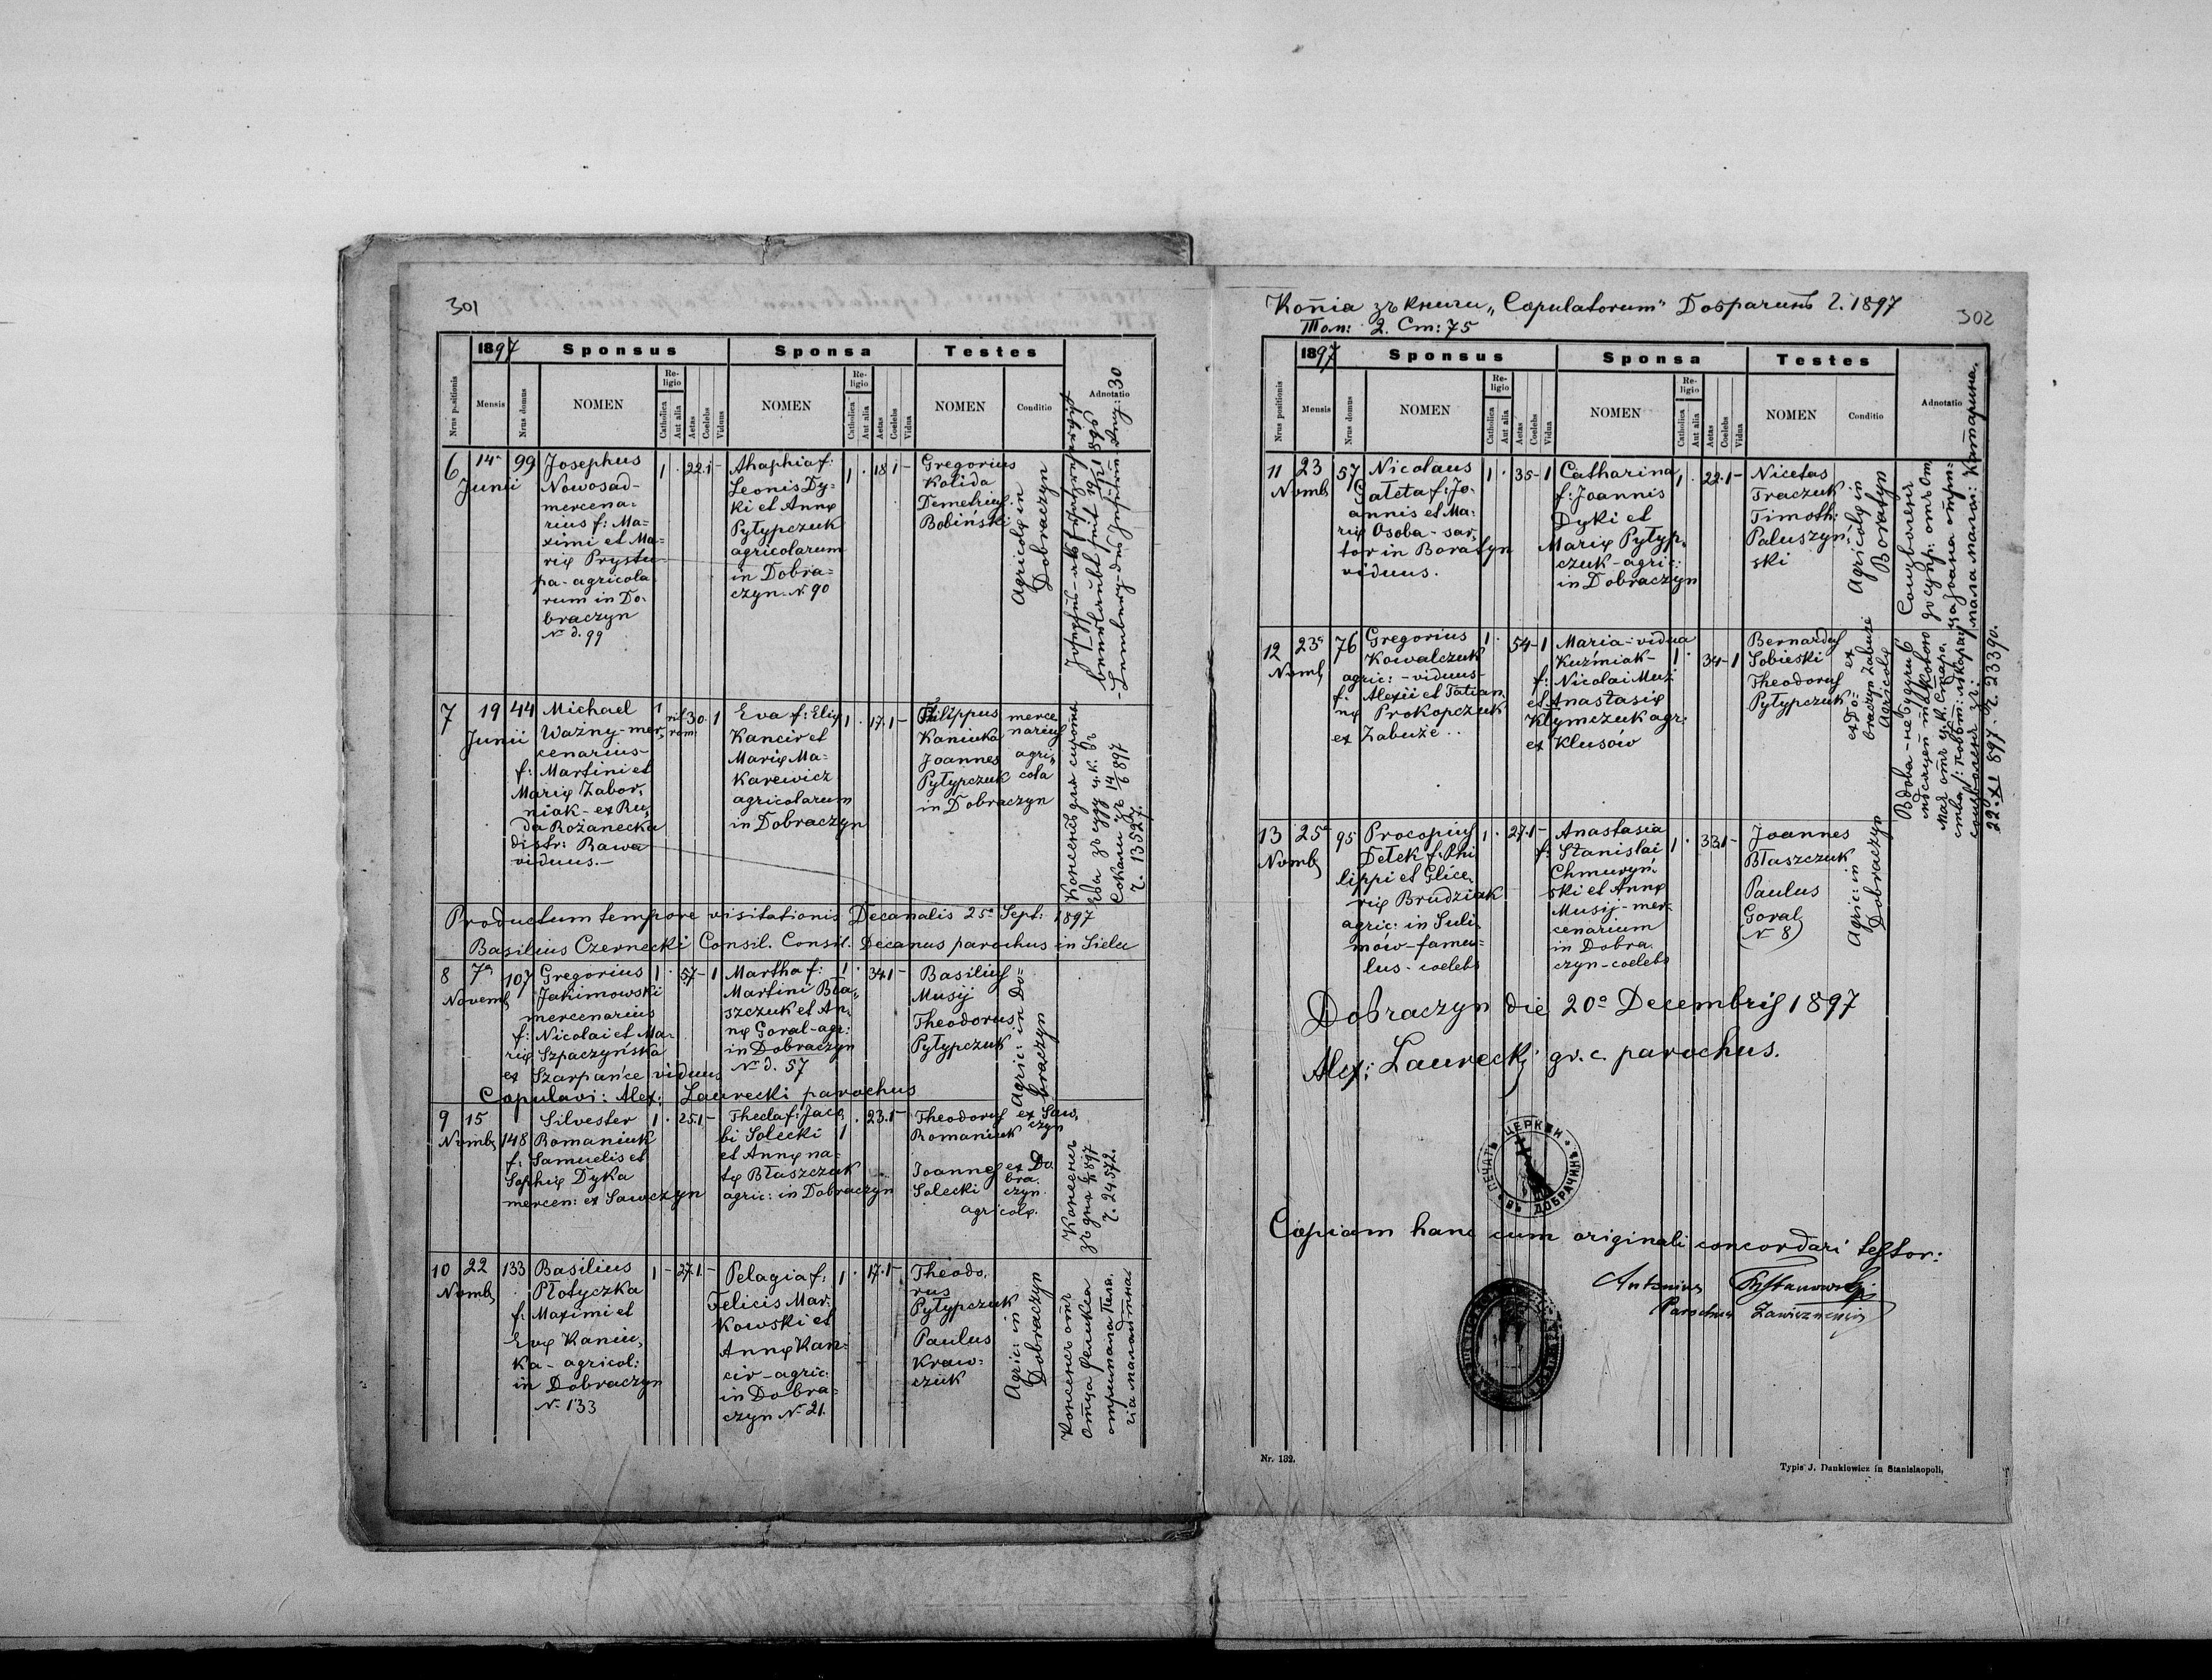 301
1897
Sponsus
Sponsa
Testes
Nrus positionis
Mensis
Nrus domus
NOMEN
Religio
Catholica
Aut alia
Aetas
Coelebs
Viduus
NOMEN
Religio
Catholica
Aut alia
Aetas
Coelebs
Vidua
NOMEN
Conditio
Adnotatio
6
14a
Junii
99
Josephus
Nowosad-
mercena-
rius f: Ma=
ximi et Ma-
rię Prystu-
pa - agricola
rum in Do-
braczyn
No d. 99
1 . 22 . 1 -
Ahaphia f:
Leonis Dy-
ki et Annę
Pyłypczuk
agricolarum
in Dobra=
czyn N. 90
1 . 18 1 -
Gregorius
Kolida
Demetrius
Bobiński
Agricolę in
Dobraczyn
7
19
Junii
44
Michael
Ważny - mer-
cenarius-
f: Martini et
Marię Zabor,
niak - ex Ru,
da Rożanecka
distr: Rawa
viduus.-
1 rit rom: 30 . 1
Eva f: Elię
Kancir et
Marię Ma-
karewicz
agricolarum
in Dobraczyn
1 . 17 . 1 -
Filippus
Kaniuka
Joannes
Pyłypczuk
in Dobraczyn
merce
narius
agri,
cola
Консенсъ для сироты
Евы зъ суду ц. к. въ
Сокали зъ 14/6 897
Ч. 13527.
Productum tempore visitationis Decanalis 25a Sept: 1897
Basilius Czernecki Consil. Consil. Decanus parochus in Sielec
8
7a
Novemb
107
Gregorius
Jakimowski
mercenarius
f: Nicolai et Ma-
rię Szpaczyńska
ex Szarpańce viduus
1 . 57 - 1
Martha f:
Martini Bła,
szczuk et An,
nę Goral - agr:
in Dobraczyn
No d. 57
1 . 34 1 -
Basilius
Musij
Theodorus
Pyłypczuk
Agric: in Do=
braczyn
Copulavi: Alex: Laurecki parochus
9
15
Novemb
148
Silvester
Romaniuk
f: Samuelis et
Sophię Dyka
mercen: ex Sawczyn
1 . 25 1 -
Thecla f: Jaco,
bi Solecki
et Annę na-
tę Błaszczuk
agric: in Dobraczyn
1 . 23 . 1 -
Theodorus
Romaniuk
Joannes
Solecki
ex Saw,
czyn
ex Do
bra.
czyn
agricolę.
Консенсъ
Ч. 24572.
10
22
Novemb
133
Basilius
Płotyczka
f: Maximi et
Evę Kaniu,
ka - agricol:
in Dobraczyn
No 133
1 - 27 . 1 -
Pelagia f:
Felicis Mar,
kowski et
Annę Kan-
cir - agric:
in Dobra=
czyn No 21.
1 . 17 . 1 -
Theodo,
rus
Pyłypczuk
Paulus
Kraw=
czuk
Agric: in
Dobraczyn
Консенсъ отъ
отца Феликса
отримала Пела,
гія малолѣтна.
Копія зъ книги „Copulatorum" Добрачинъ Ч. 1897
Том: 2. Ст: 75
302
1897
Sponsus
Sponsa
Testes
Nrus positionis
Mensis
Nrus domus
NOMEN
Religio
Catholica
Aut alia
Aetas
Coelebs
Vidua
NOMEN
Religio
Catholica
Aut alia
Aetas
Coelebs
Vidua
NOMEN
Conditio
Adnotatio
11
23
Novemb
57
Nicolaus
Gałeta f: Jo-
annis et Ma:
rię Osoba - sar,
tor in Boratyn
viduus.
1 . 35 - 1
Catharina
f: Joannis
Dyki et
Marię Pyłyp,
czuk - agric:
in Dobraczyn
1 . 22 . 1 -
Nicetas
Traczuk
Timoth:
Paluszyń,
ski
Agricolę in
Boratyn
12
23a
Novemb
76
Gregorius
Kowalczuk
agric: - viduus-
f: Alexii et Tatian
nę Prokopczuk
ex Zabuże ..
1 . 54 - 1
Maria - vidua
Kuźmiak-
f: Nicolai Muż
et Anastasię
Klymczuk agr:
ex Klusów
1 . 34 - 1
Bernardus
Sobieski
Theodorus
Pyłypczuk
ex
ex Do:
braczyn Zabuże
Agricolę
22. XI 897. Ч. 23390.
13
25a
Novemb
95
Procopius
Detek f: Phi
lippi et Glice,
rię Brudziak
agric: in Suli,
mów - famu=
lus - coelebs
1 . 27 . 1 -
Anastasia
f: Stanislai
Chmuryń,
ski et Annę
Musij - mer-
cenarium
in Dobra.
czyn - coelebs
1 . 33 1 -
Joannes
Błaszczuk
Paulus
Goral
No 8
Agric: in
Dobraczyn
Dobraczyn die 20a Decembris 1897
Alex: Laurecki gr. c. parochus.
ПЕЧАТЬ ЦЕРКВИ ВЪ ДОБРАЧИНЪ
Copiam hanc cum originali concordari testor:
Antonius
Parochus
Nr. 132.
Typis J. Dankiewicz in Stanislaopoli,